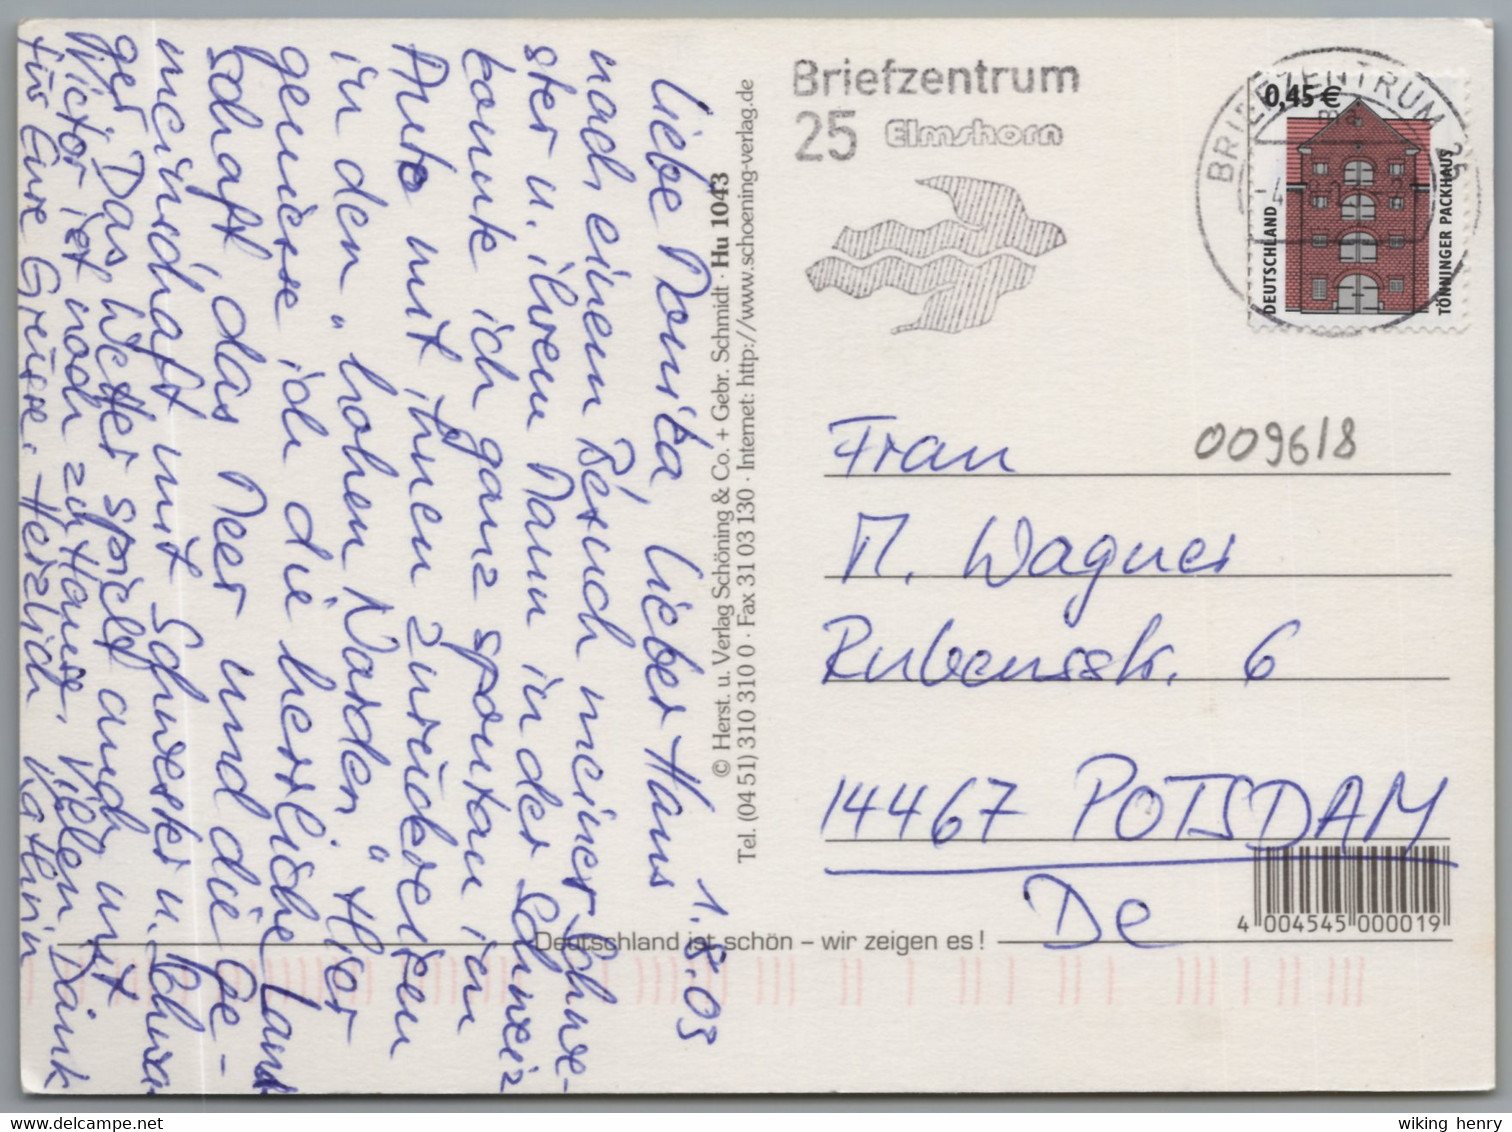 1.8.03
Liebe Monika, lieber Hans
nach einem Besuch meiner Schwe-
ster u. ihrem Mann in der Schweiz
konnte ich ganz spontan im
Auto mit ihnen zurückreisen
in den "hohen Norden." Hier
geniesse ich die herrliche Land
schaft, das Meer und die Ge-
meinschaft mit Schwester u. Schwa-
ger. Das Wetter spielt auch mit
Victor ist noch zu Hause. Vielen Dank
für Eure Grüsse. Herzlich Kathrin
© Herst. u. Verlag Schöning & Co. + Gebr. Schmidt · Hu 1043
Tel. (04 51) 310 310 0 · Fax 31 03 130 · Internet: http://www.schoening-verlag.de
Briefzentrum
25 Elmshorn
BRIEFZENTRUM 25
0,45 €
DEUTSCHLAND
TÖNNINGER PACKHAUS
009618
Frau
M. Wagner
Rubensstr. 6
14467 POTSDAM
De
4 004545 000019
Deutschland ist schön – wir zeigen es!
wiking henry